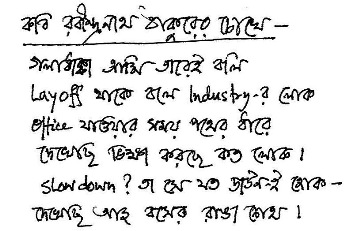 কবি রবীন্দ্রনাথ ঠাকুরের চোখে —
গলাধাক্কা আমি তারেই বলি
Layoff যাকে বলে Industry-র লোক
office যাওয়ার সময় পথের ধারে
দেখেছি ভিক্ষা করছে কত লোক।
slowdown? তা সে যত ডাউনই হোক —
দেখেছি আহ বসের রাঙা চোখ।